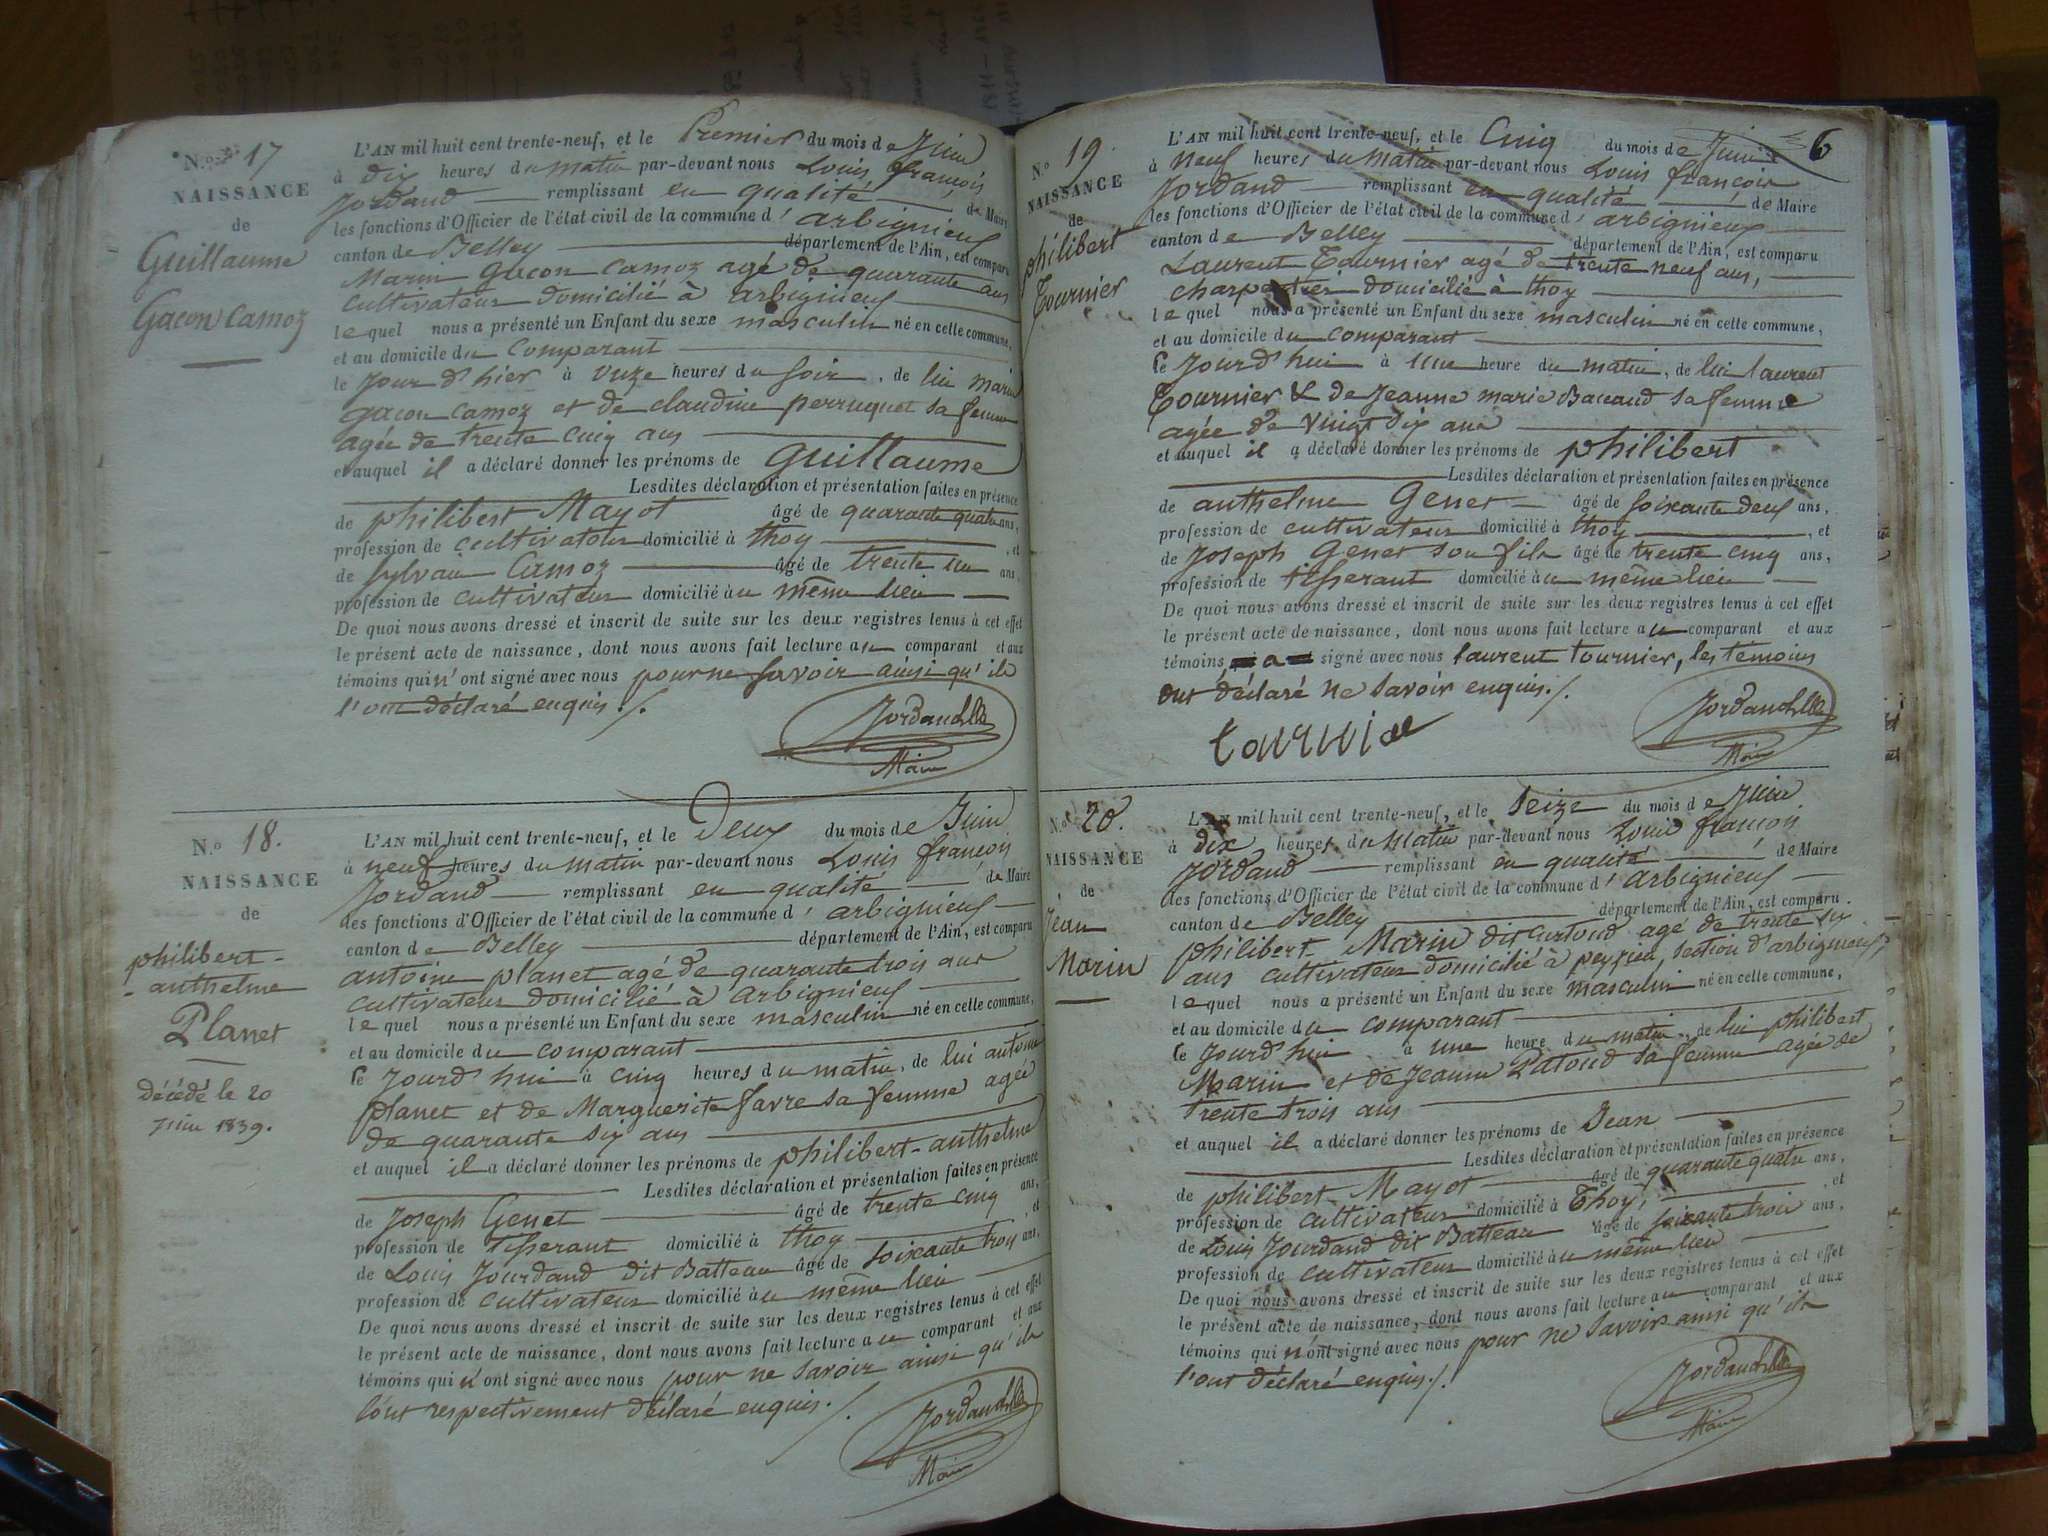 N.º 17
NAISSANCE
de
Guillaume
Gacon Camoz
L'AN mil huit cent trente-neuf, et le Premier du mois de Juin
à dix heures du matin par-devant nous Louis françois
Jordand remplissant en qualité de Maire
les fonctions d'Officier de l'état civil de la commune d'arbignieux
canton de Belley département de l'Ain, est comparu
Marin Gacon Camoz agé de quarante ans
cultivateur domicilié à arbignieux
lequel nous a présenté un Enfant du sexe masculin né en cette commune,
et au domicile du comparant
le jour d'hier à onze heures du soir, de lui marin
gacon camoz et de claudine perruquet sa femme
agée de trente cinq ans
et auquel il a déclaré donner les prénoms de guillaume
Lesdites déclaration et présentation faites en présence
de philibert Mayot âgé de quarante quatre ans,
profession de cultivateur domicilié à thoy, et
de sylvain Camoz âgé de trente un ans,
profession de cultivateur domicilié au même lieu
De quoi nous avons dressé et inscrit de suite sur les deux registres tenus à cet effet
le présent acte de naissance, dont nous avons fait lecture au comparant et aux
témoins qui n'ont signé avec nous pour ne savoir ainsi qu'ils
l'ont déclaré enquis ./.
Jordand
Maire
N.º 18.
NAISSANCE
de
philibert-
-anthelme
Planet
décédé le 20
juin 1839.
L'AN mil huit cent trente-neuf, et le Deux du mois de Juin
à neuf heures du matin par-devant nous Louis françois
Jordand remplissant en qualité de Maire
les fonctions d'Officier de l'état civil de la commune d'arbignieux
canton de Belley département de l'Ain, est comparu
antoine planet agé de quarante trois ans
cultivateur domicilié à arbignieux
lequel nous a présenté un Enfant du sexe masculin né en cette commune,
et au domicile du comparant
le jourd'hui à cinq heures du matin, de lui antoine
planet et de Marguerite favre sa femme agée
de quarante six ans
et auquel il a déclaré donner les prénoms de philibert-anthelme
Lesdites déclaration et présentation faites en présence
de Joseph Genet âgé de trente cinq ans,
profession de tisserant domicilié à thoy, et
de Louis Jourdand dit Batteau âgé de soixante trois ans,
profession de cultivateur domicilié au même lieu
De quoi nous avons dressé et inscrit de suite sur les deux registres tenus à cet effet
le présent acte de naissance, dont nous avons fait lecture au comparant et aux
témoins qui n'ont signé avec nous pour ne savoir ainsi qu'ils
l'ont respectivement déclaré enquis ./.
Jordand
Maire
6
N.º 19.
NAISSANCE
de
philibert
Tournier
L'AN mil huit cent trente-neuf, et le Cinq du mois de Juin
à neuf heures du matin par-devant nous Louis françois
Jordand remplissant en qualité de Maire
les fonctions d'Officier de l'état civil de la commune d'arbignieux
canton de Belley département de l'Ain, est comparu
Laurent Tournier agé de trente neuf ans,
charpentier domicilié à thoy
lequel nous a présenté un Enfant du sexe masculin né en cette commune,
et au domicile du comparant
le jourd'hui à une heure du matin, de lui laurent
Tournier & de Jeanne marie Baccand sa femme
agée de vingt dix ans
et auquel il a déclaré donner les prénoms de philibert
Lesdites déclaration et présentation faites en présence
de anthelme Genet âgé de soixante deux ans,
profession de cultivateur domicilié à thoy, et
de Joseph Genet son fils âgé de trente cinq ans,
profession de tisserant domicilié au même lieu
De quoi nous avons dressé et inscrit de suite sur les deux registres tenus à cet effet
le présent acte de naissance, dont nous avons fait lecture au comparant et aux
témoins, a signé avec nous laurent tournier, les témoins
ont déclaré ne savoir enquis ./.
Jordand
Maire
N.º 20.
NAISSANCE
de
Jean
Marin
L'AN mil huit cent trente-neuf, et le seize du mois de Juin
à dix heures du matin par-devant nous Louis françois
Jordand remplissant en qualité de Maire
les fonctions d'Officier de l'état civil de la commune d'arbignieux
canton de Belley département de l'Ain, est comparu.
philibert Marin dit curtoud agé de trente six
ans cultivateur domicilié à peyzieu, section d'arbignieux,
lequel nous a présenté un Enfant du sexe masculin né en cette commune,
et au domicile du comparant
le jourd'hui à une heure du matin, de lui philibert
Marin et de Jeanne Patoud sa femme agée de
trente trois ans
et auquel il a déclaré donner les prénoms de Jean
Lesdites déclaration et présentation faites en présence
de philibert Mayot âgé de quarante quatre ans,
profession de cultivateur domicilié à Thoy, et
de Louis Jourdand dit Batteau âgé de soixante trois ans,
profession de cultivateur domicilié au même lieu
De quoi nous avons dressé et inscrit de suite sur les deux registres tenus à cet effet
le présent acte de naissance, dont nous avons fait lecture au comparant et aux
témoins qui n'ont signé avec nous pour ne savoir ainsi qu'ils
l'ont déclaré enquis ./.
Jordand
Maire